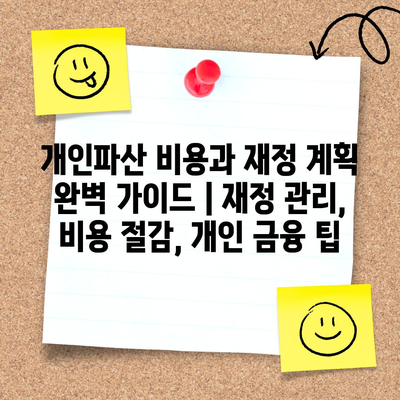 개인파산 비용과 재정 계획
완벽 가이드 | 재정 관리,
비용 절감, 개인 금융 팁